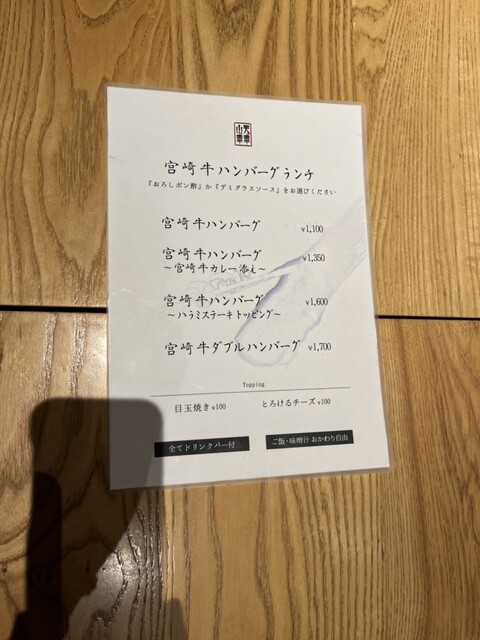 宮崎牛ハンバーグランチ
『おろしポン酢』か『デミグラスソース』をお選びください
宮崎牛ハンバーグ ¥1,100
宮崎牛ハンバーグ ¥1,350
～宮崎牛カレー添え～
宮崎牛ハンバーグ ¥1,600
～ハラミステーキトッピング～
宮崎牛ダブルハンバーグ ¥1,700
Topping
目玉焼き ¥100 とろけるチーズ ¥100
全てドリンクバー付 ご飯・味噌汁 おかわり自由